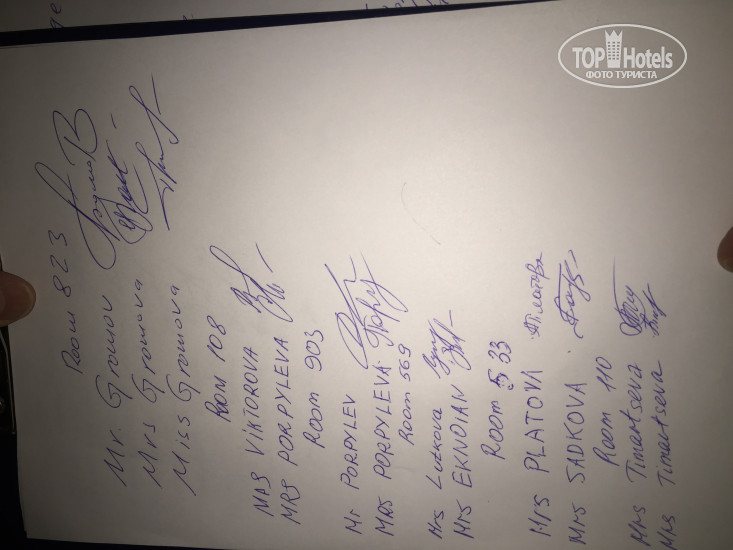 Room 823
Mr. Gromov
Mrs Gromova
Miss Gromova
Room 108
MRS VIKTOROVA
MRS PORPYLEVA
Room 903
Mr PORPYLEV
MRS PORPYLEVA
Room 569
Mrs Lutkova
Mrs EKNDIAN
Room 533
Mrs PLATOVA Платова
Mrs SADKOVA
Room 110
Mrs Timartseva
Mrs Timartseva
TOP Hotels
ФОТО ТУРИСТА